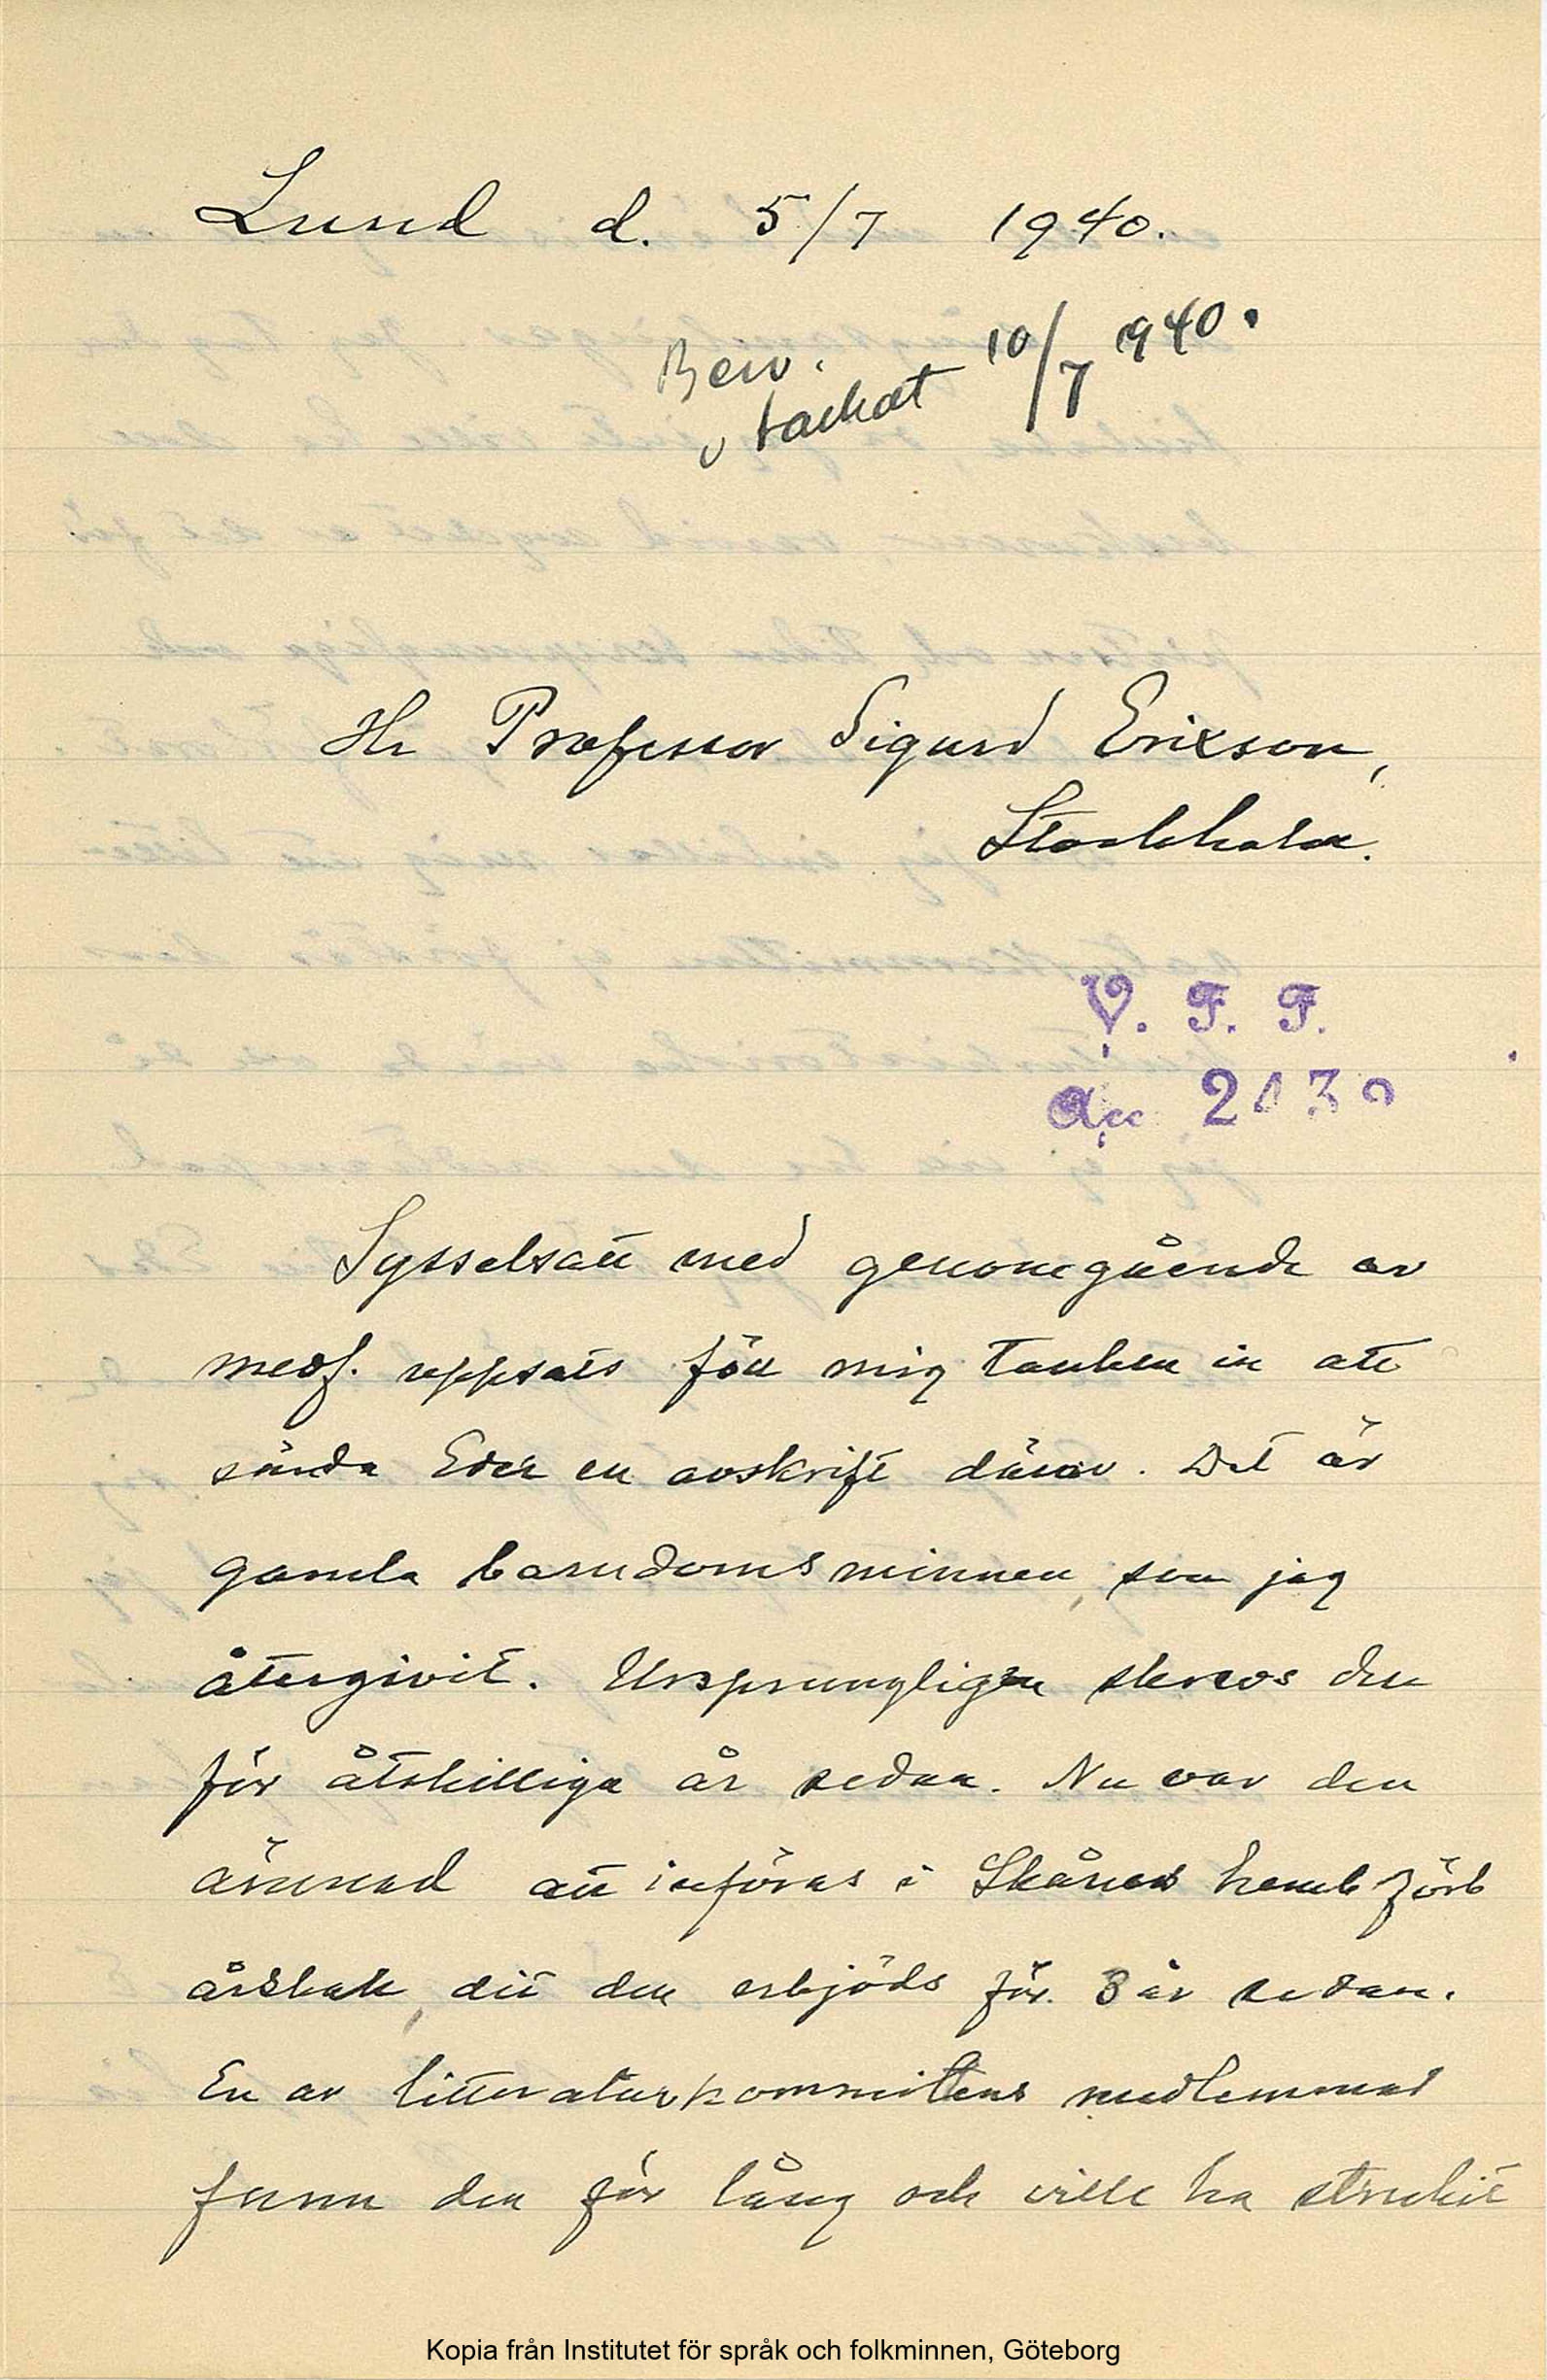 Lund d. 5/7 1940.
Besv.
o tackat 10/7 1940.
Hr Professor Sigurd Erixson,
Stockholm.
V. F. F.
Sysselsatt med genomgående av
medf. uppsats föll mig tanken in att
sända Eder en avskrift därav. Det är
gamla barndomsminnen, som jag
återgivit. Ursprungligen skrevos den
för åtskilliga år sedan. Nu var den
ämnad att införas i Skånes hembförb
årsbok, dit den erbjöds för 3 år sedan.
En av litteraturkommittens medlemmar
fann den för lång och ville ha struckit
Kopia från Institutet för språk och folkminnen, Göteborg